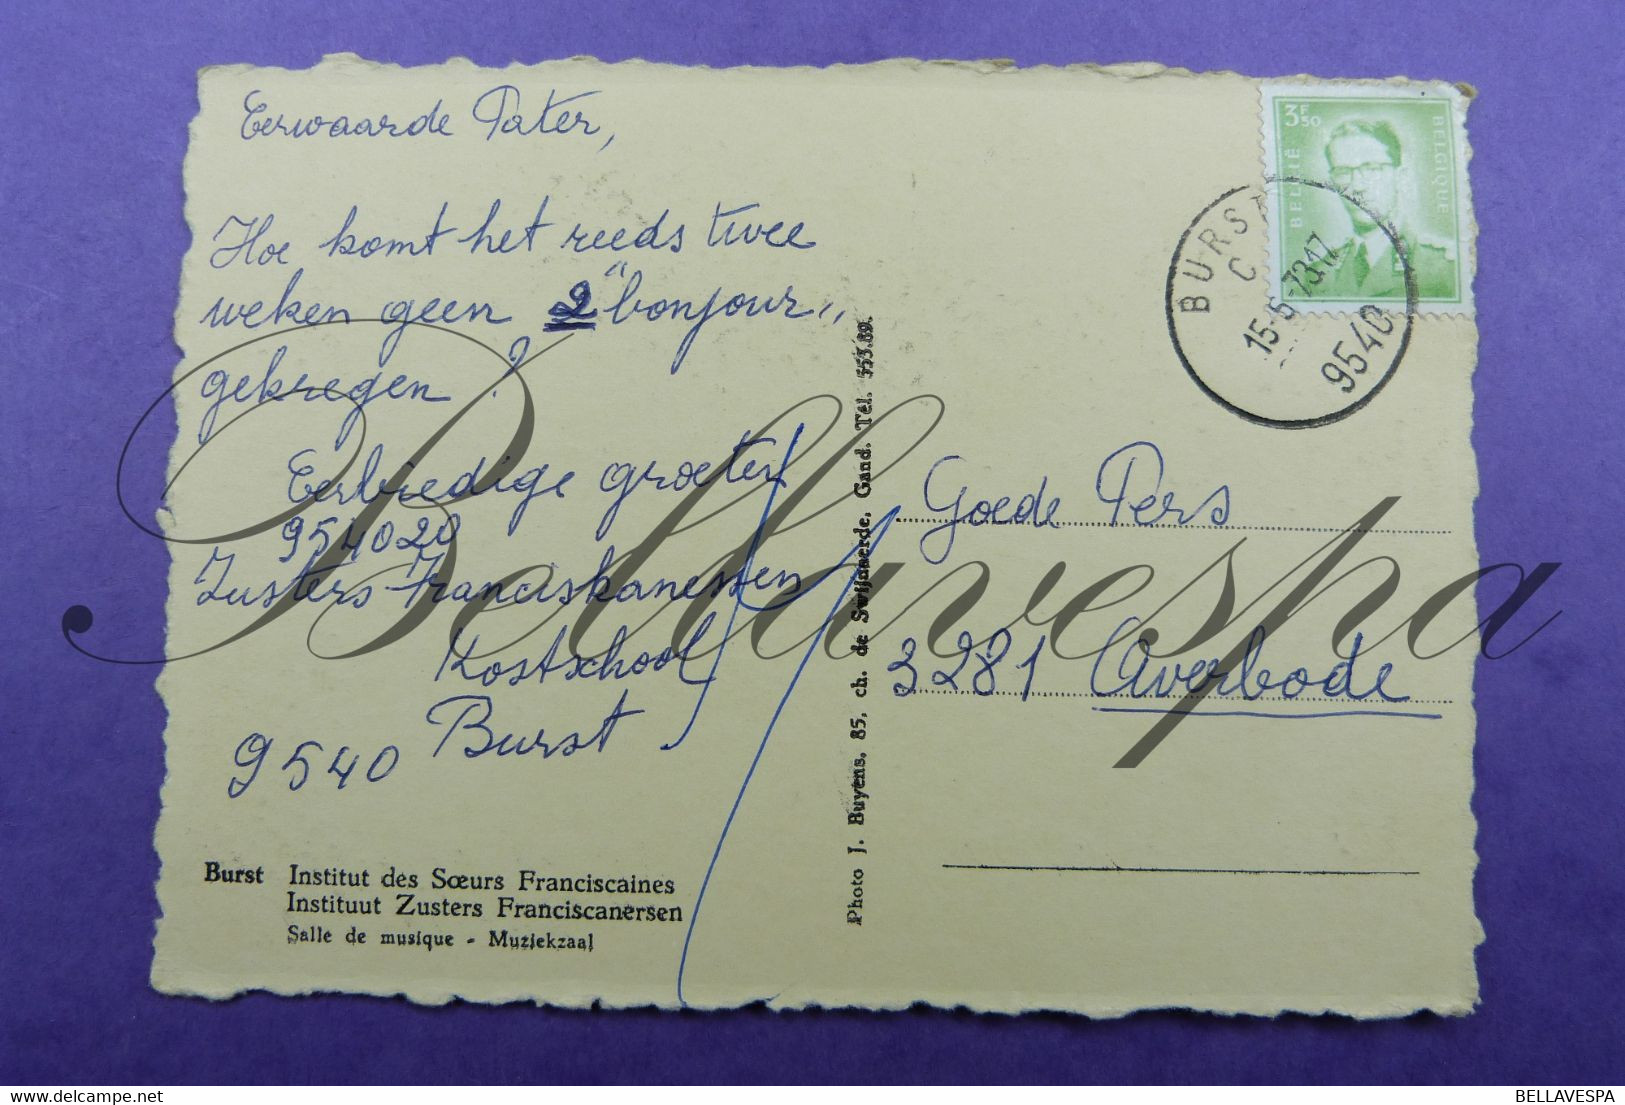 Eerwaarde Pater,
Hoe komt het reeds twee
weken geen 2 "bonjour"
gekregen ?
Eerbiedige groeten
954020
Zusters Franciskanessen
Kostschool
Burst
9540
Burst Institut des Sœurs Franciscaines
Instituut Zusters Franciscanersen
Salle de musique - Muziekzaal
Photo J. Buyens, 85, ch. de Swijnaerde, Gand. Tél. 553.89.
3F50
BELGIË BELGIQUE
BURST
C
15-5-73 17
9540
Goede Pers
3281 Averbode
Bellavespa
BELLAVESPA